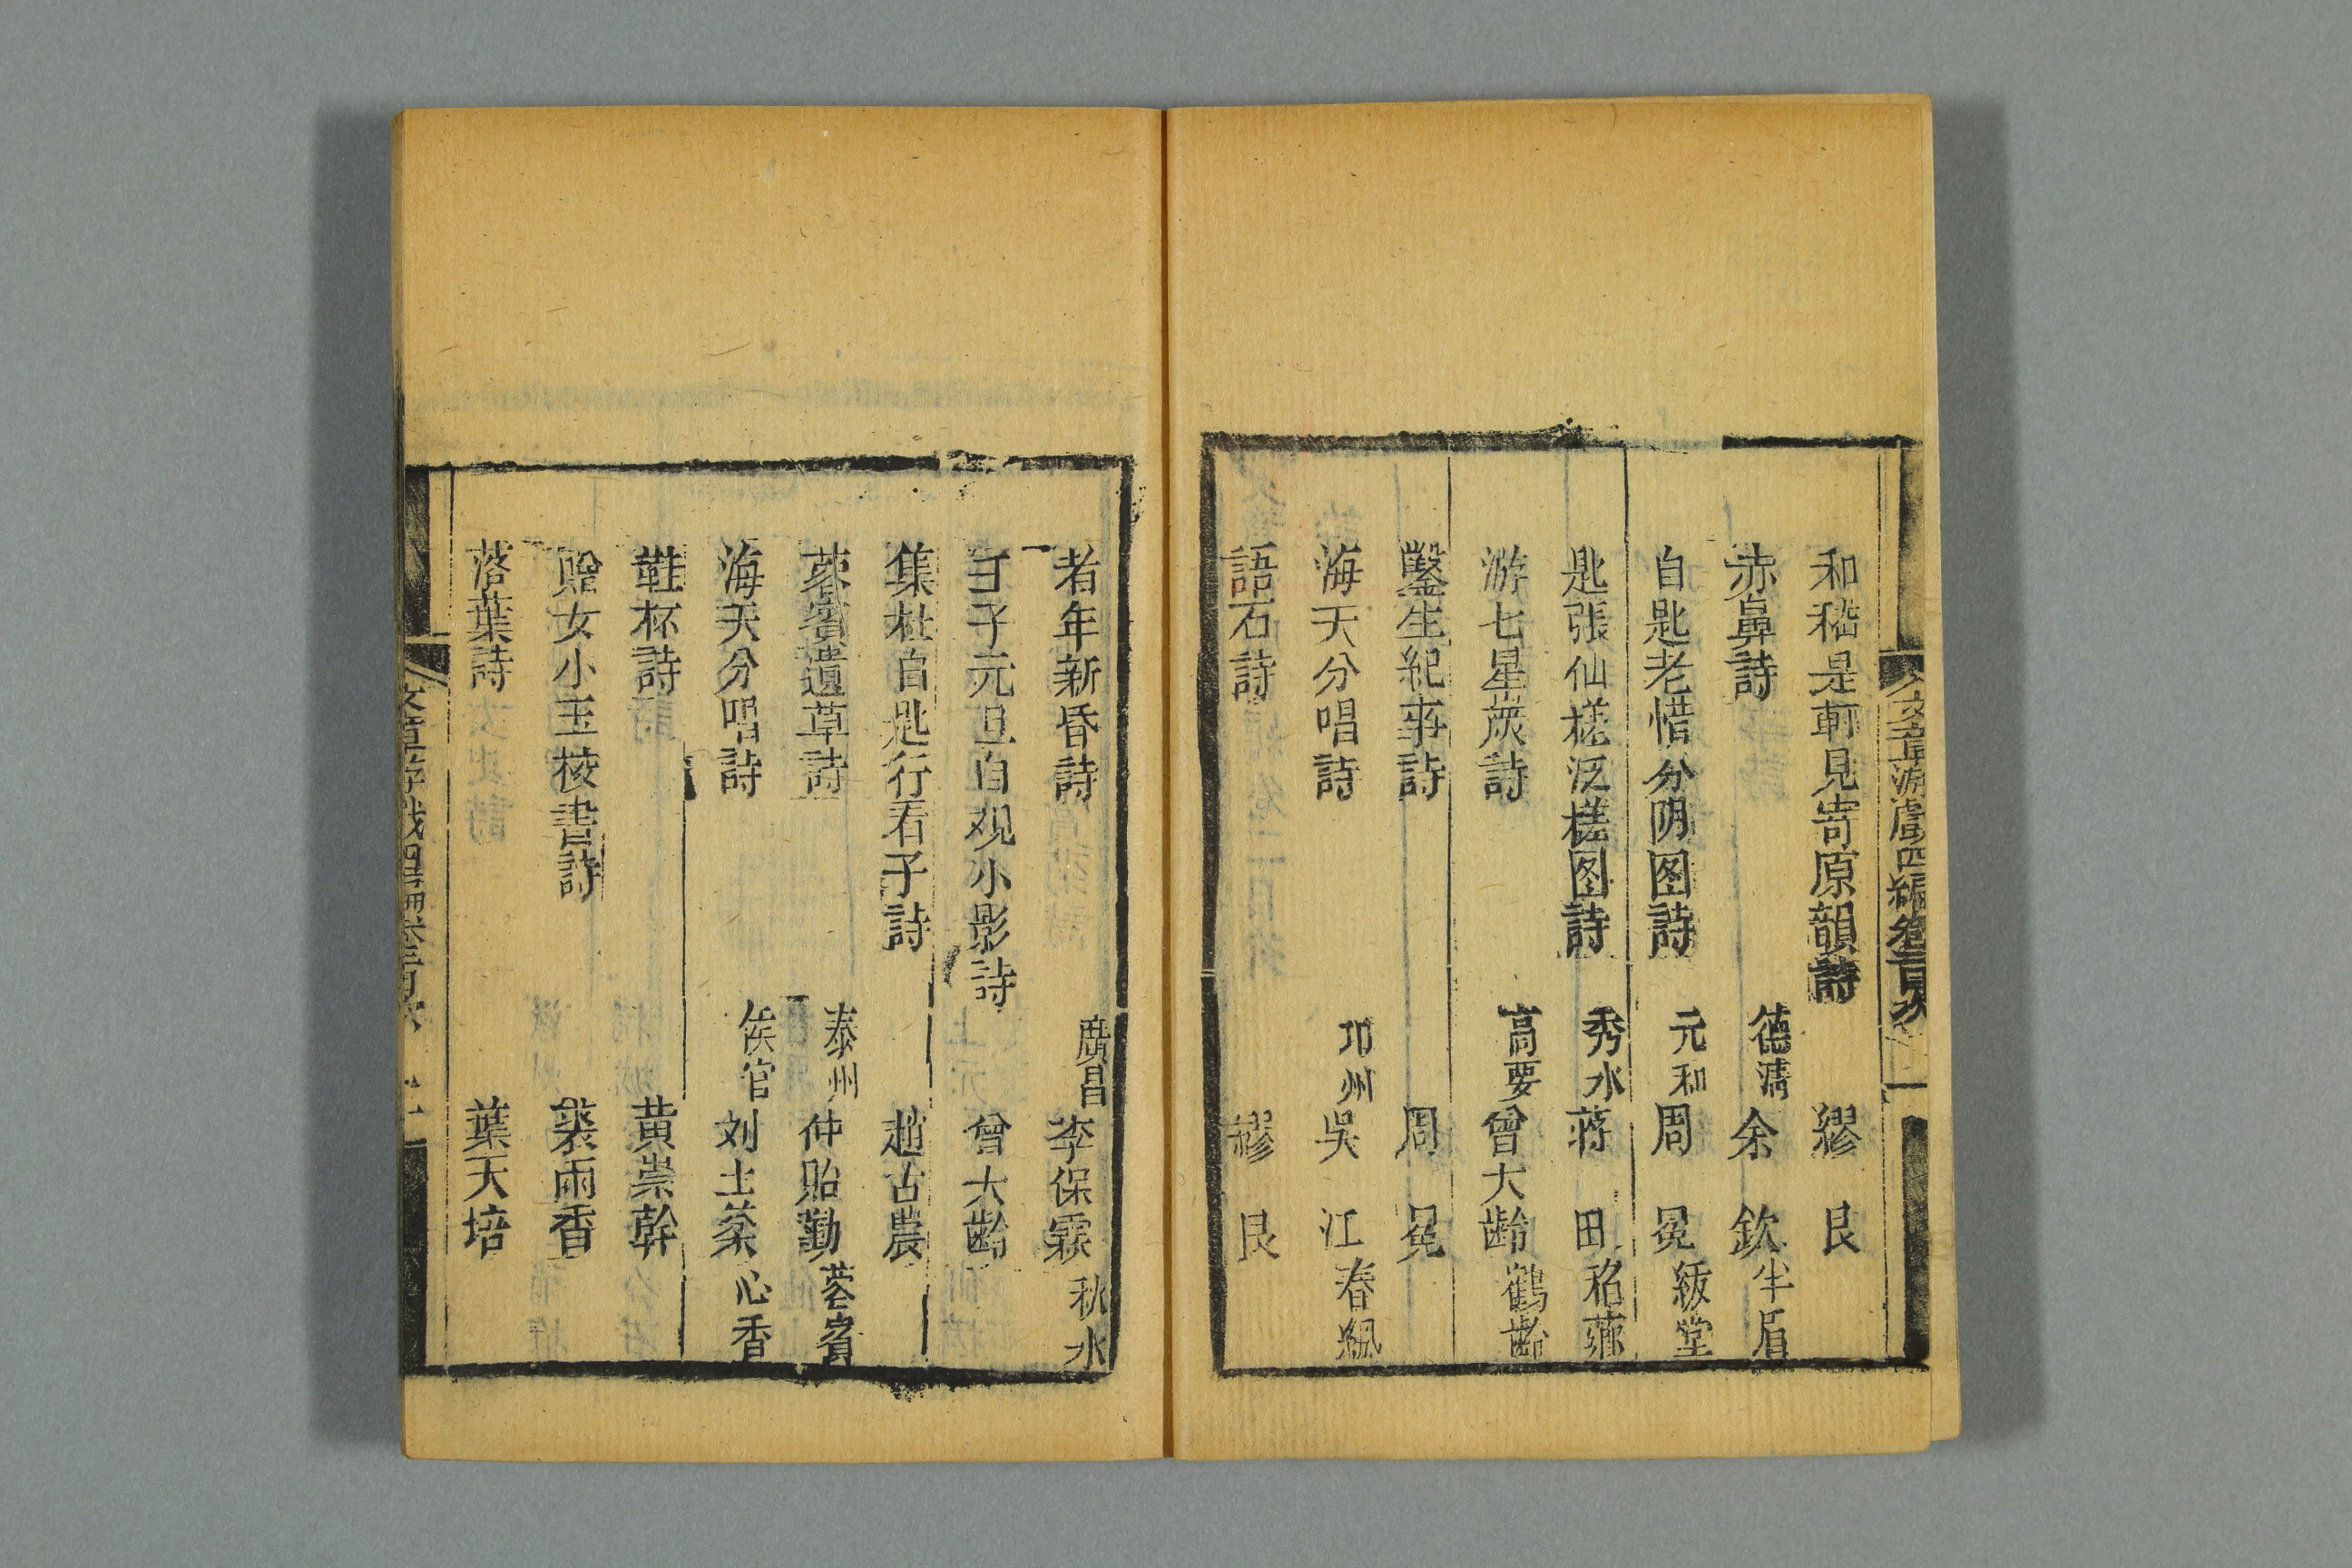 文章游戲四編卷三目次
和稽是軒見寄原韻詩 繆艮
赤鼻詩 德清 余欽 半眉
自題老惜分阴图詩 元和 周冕 紱堂
題張仙槎泛槎图詩 秀水 蒋田
游七星岩詩 高要 曾大齡 鶴齡
鑿生紀事詩 周冕
海天分唱詩 邛州 吳江 春颿
語石詩 繆艮
耆年新昏詩 廣昌 李保霖 秋水
子元旦自观小影詩 曾大齡
集杜自題行看子詩 趙古農
蓉賓遺草詩 泰州 仲貽勤 蓉賓
海天分唱詩 侯官 刘士棻 心香
鞋杯詩 黄崇幹
贈女小玉校書詩 裘雨香
落葉詩 葉天培
文章游戲四編卷三目次